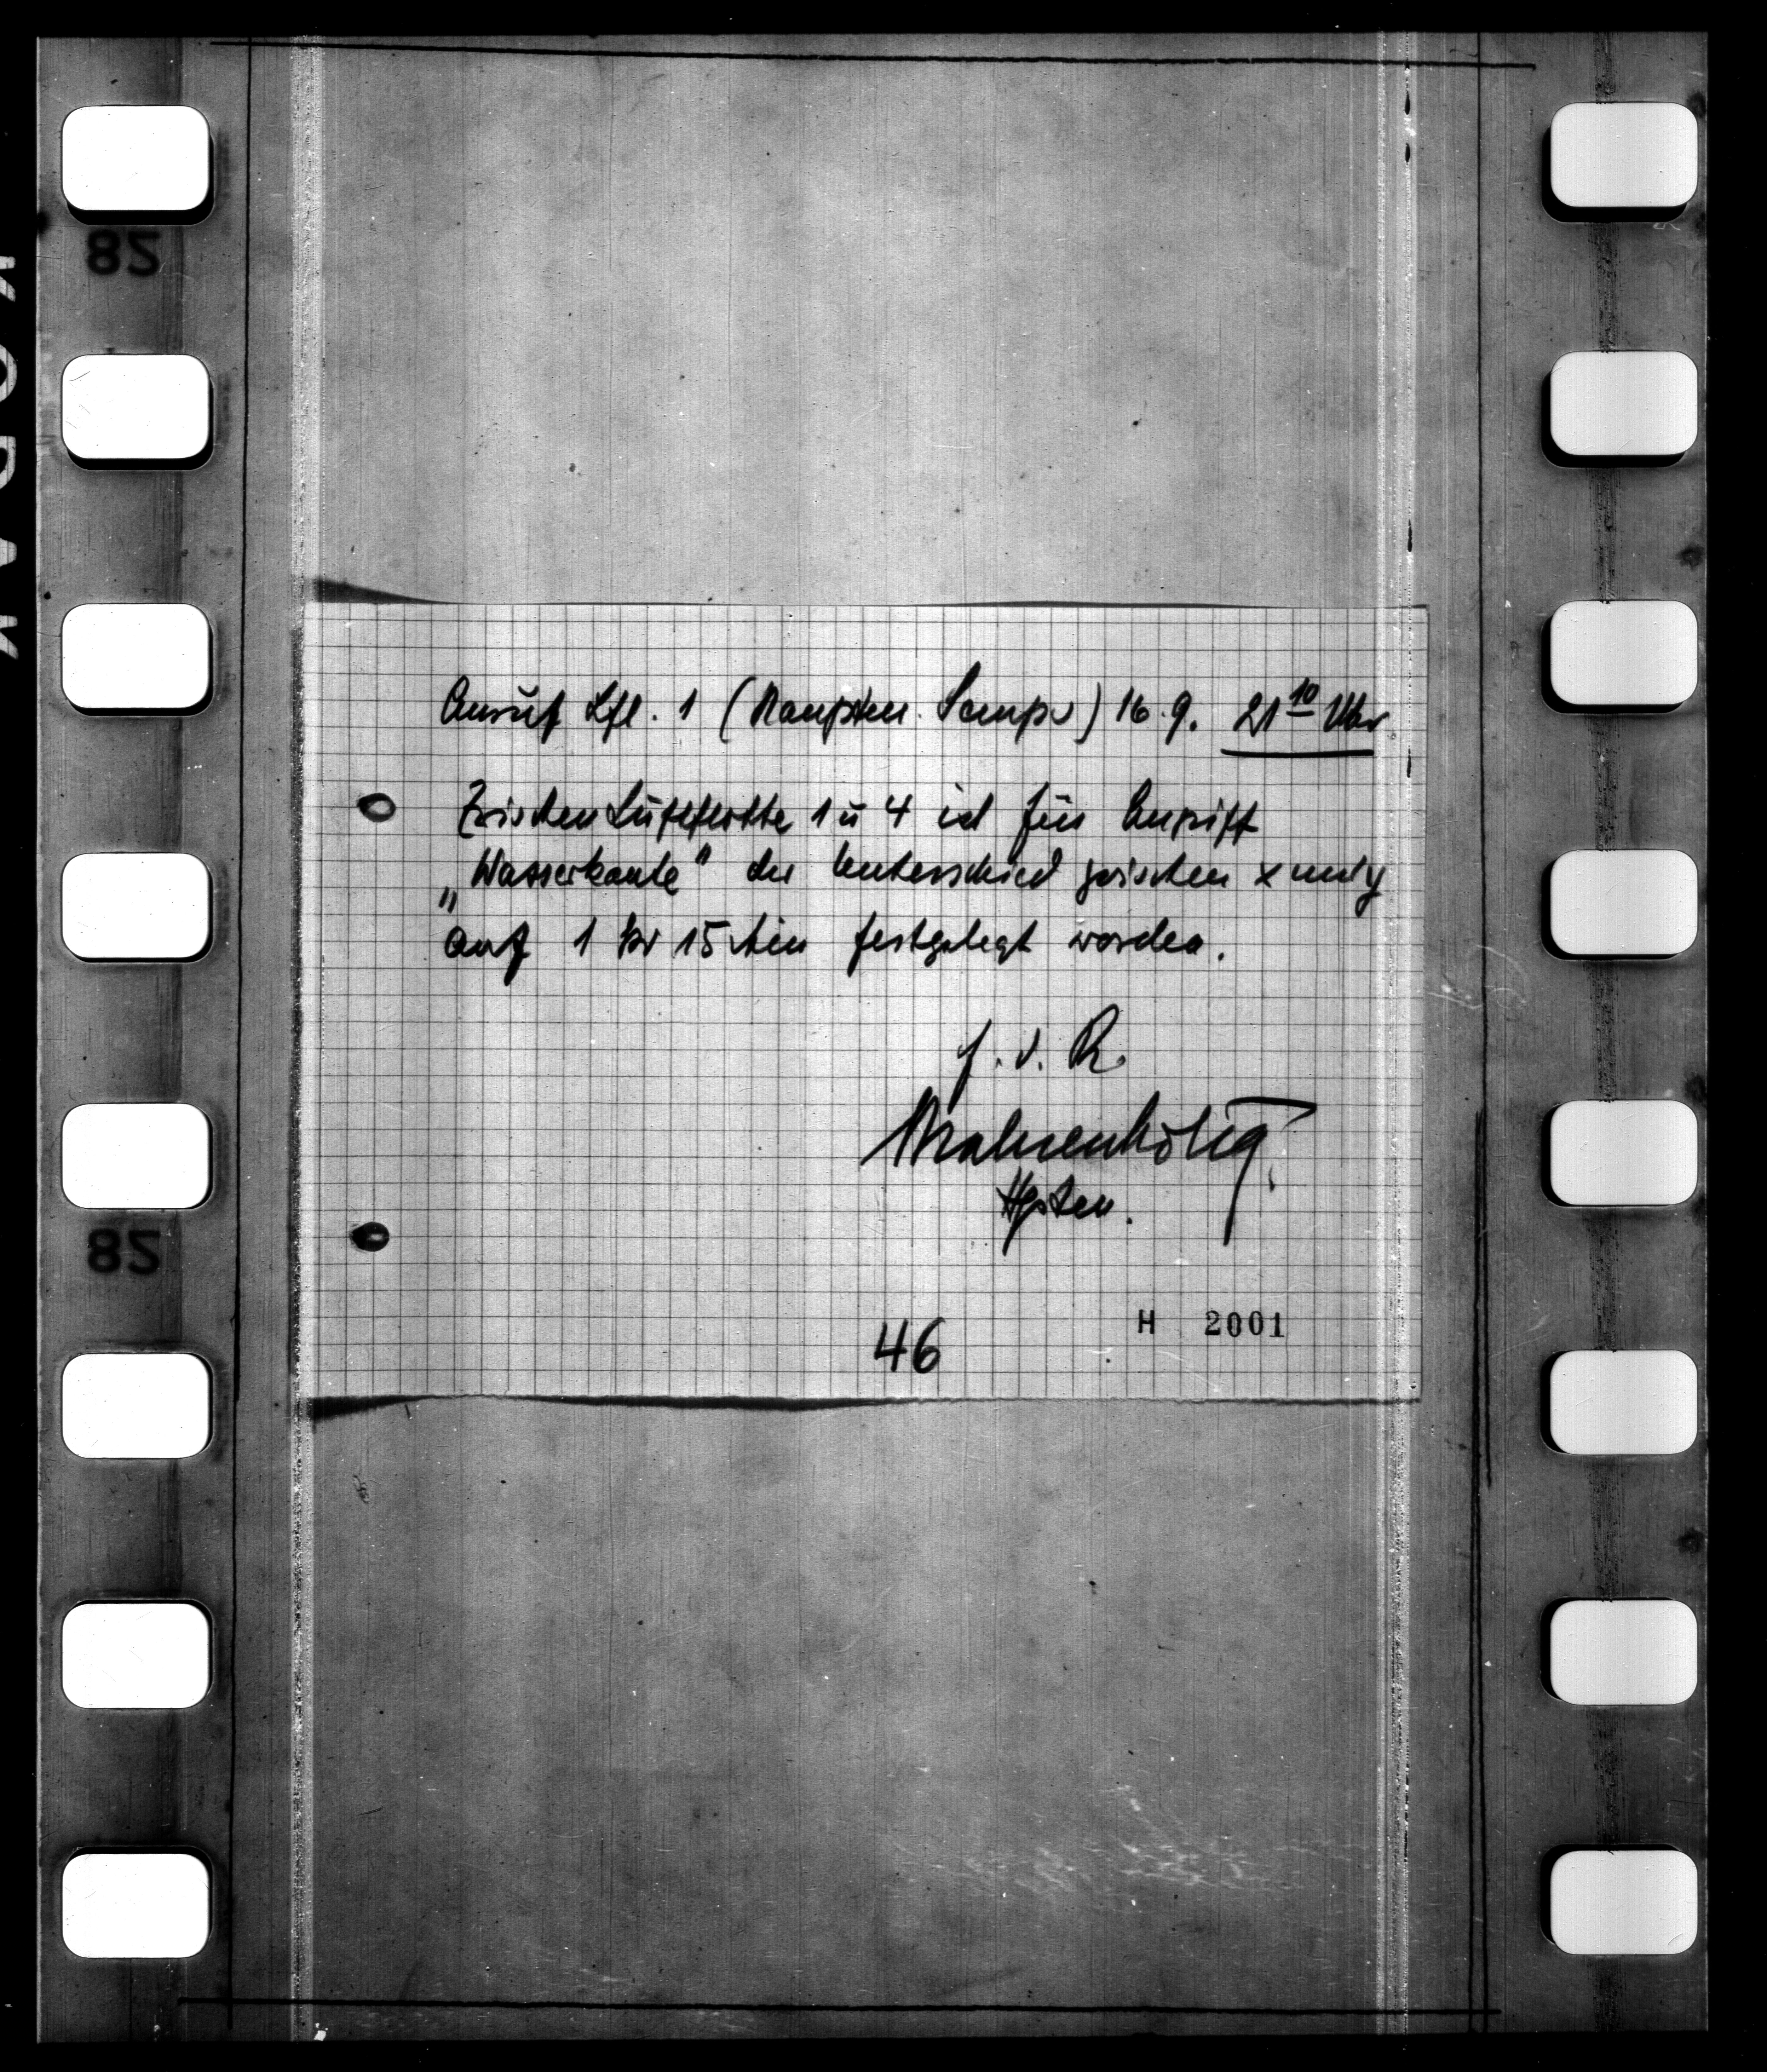 Anruf Lfl. 1 (Hauptm. ) 16.9. 21 10 Uhr
Zwischen Luftflotte 1 u 4 ist für Angriff
„Wasserkante" der Unterschied zwischen x und y
auf 1 Std 15 Min festgelegt worden.
f. d. R.
Hptm.
46
H 2001
82
82
KODAK